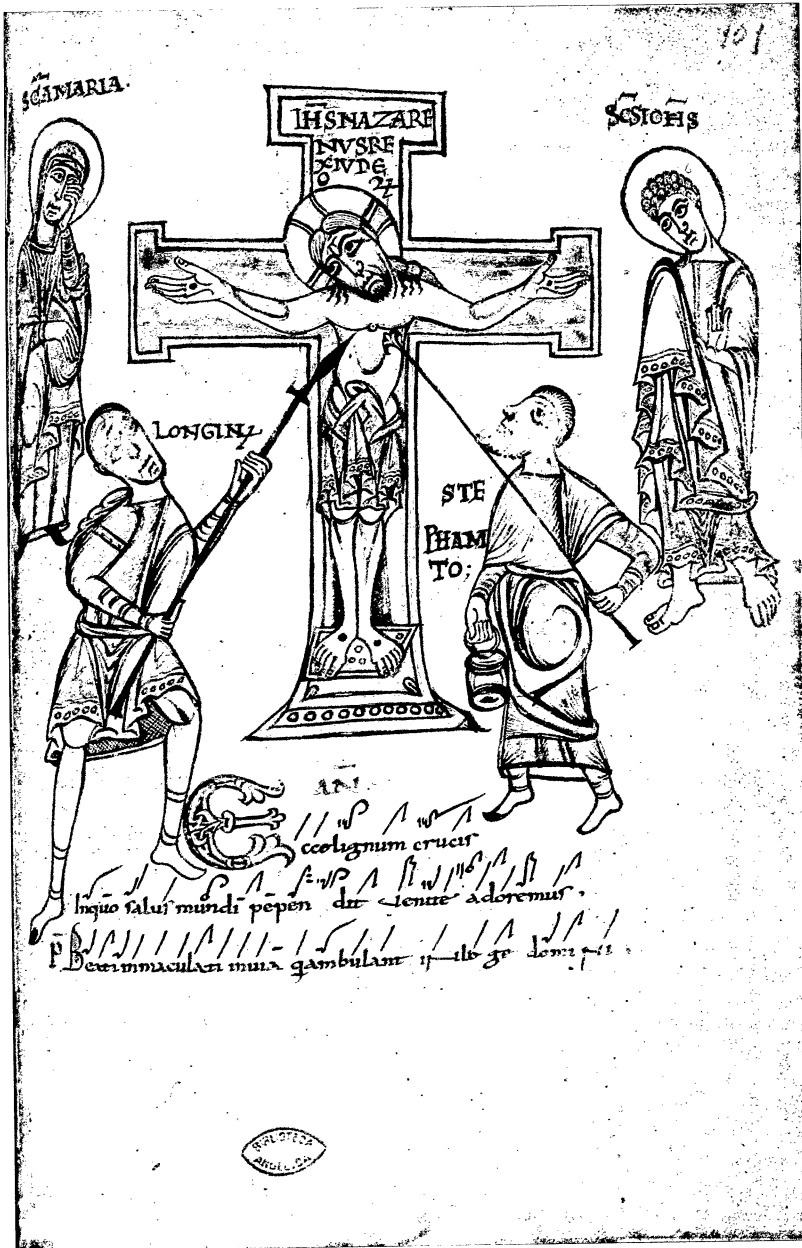 101
S̄C̄A MARIA·
IH̄S NAZARE
NVS RE
X IVDE
O
S̄C̄S IOH̄S
LONGIN
STE
PHAM
TO;
AN̄
Ecce lignum crucis
Inquo salus mundi pependit venite adoremus.
Beati inmaculati inuia q̄ambulant
BIBLIOTECA
ANGELICA